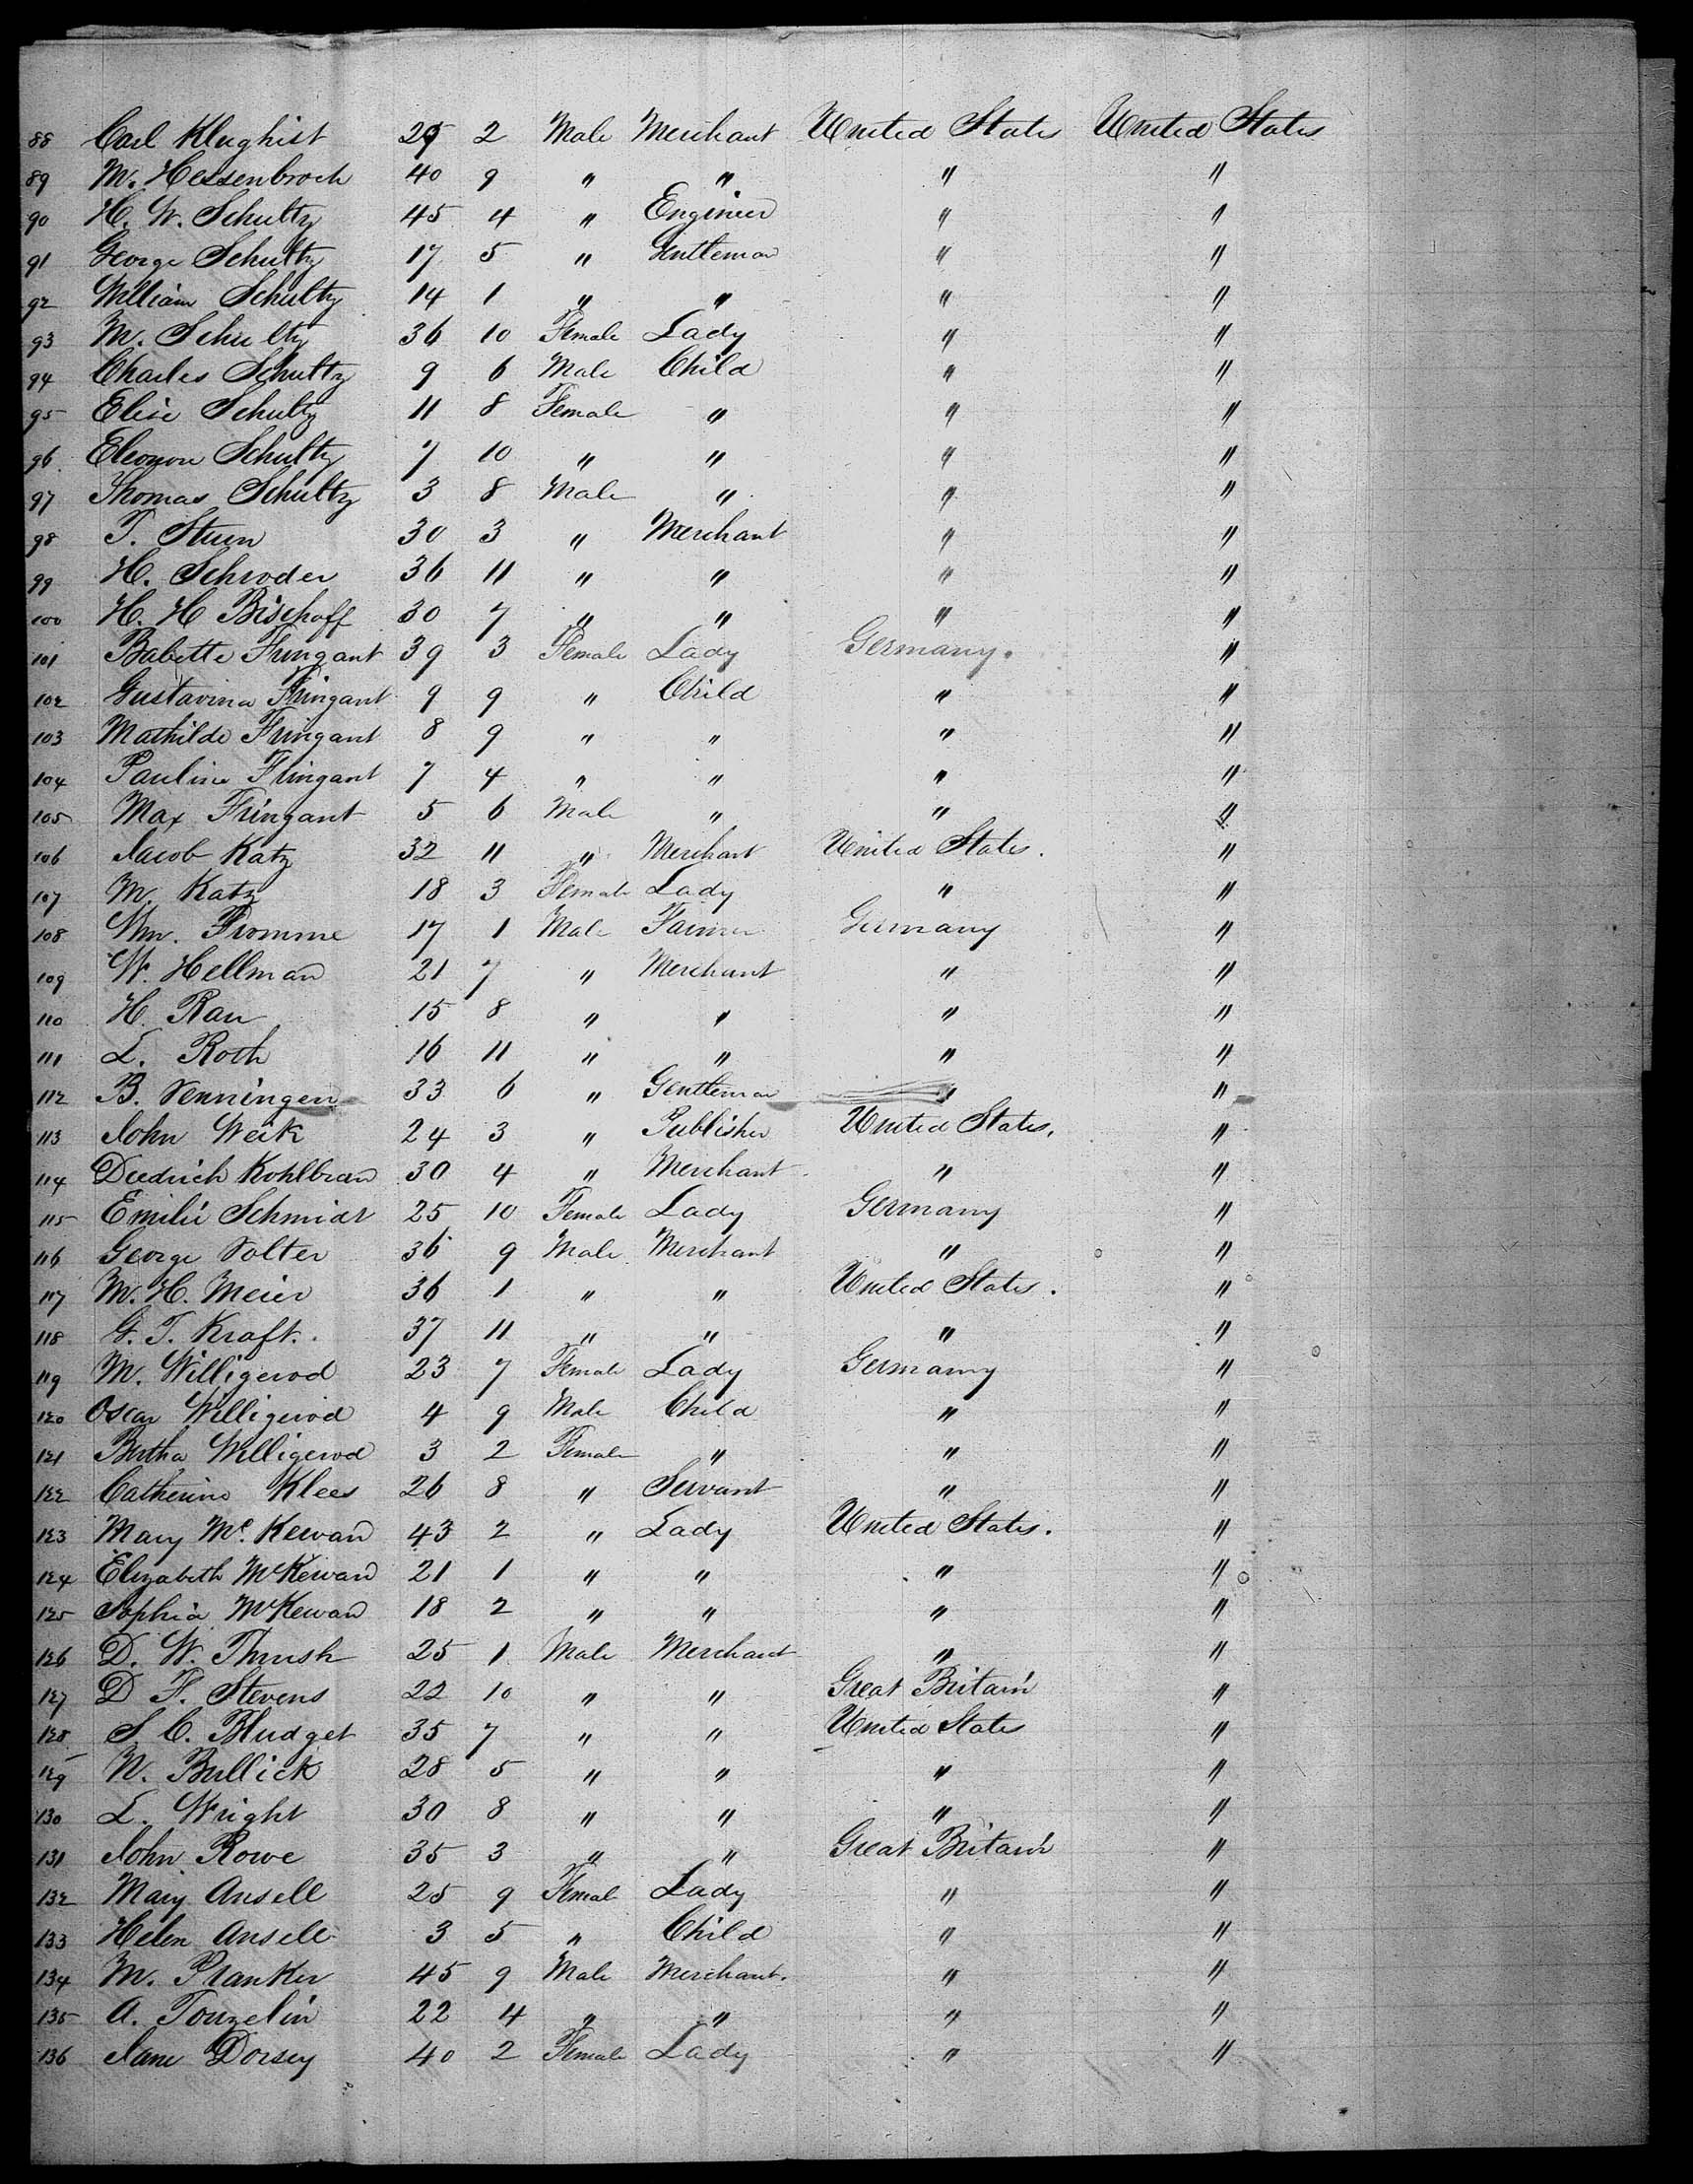 88 Carl Klughist 29 2 Male Merchant United States United States
89 M. Hessenbroch 40 9 " " " "
90 H. W. Schultz 45 4 " Engineer " "
91 George Schultz 17 5 " Gentleman " "
92 William Schultz 14 1 " " " "
93 M. Schultz 36 10 Female Lady " "
94 Charles Schultz 9 6 Male Child " "
95 Elise Schultz 11 8 Female " " "
96 Eleonore Schultz 7 10 " " " "
97 Thomas Schultz 3 8 Male " " "
98 T. Sturn 30 3 " Merchant " "
99 H. Schroder 36 11 " " " "
100 H. H Bischoff 30 7 " " " "
101 Babette Fringant 39 3 Female Lady Germany. "
102 Gustavina Fringant 9 9 " Child " "
103 Mathilde Fringant 8 9 " " " "
104 Pauline Fringant 7 4 " " " "
105 Max Fringant 5 6 Male " " "
106 Jacob Katz 32 11 " Merchant United States. "
107 M. Katz 18 3 Female Lady " "
108 Wm. Fromme 17 1 Male Farmer Germany "
109 W. Hellman 21 7 " Merchant " "
110 H. Rau 15 8 " " " "
111 L. Roth 16 11 " " " "
112 B. Venningen 33 6 " Gentleman " "
113 John Weik 24 3 " Publisher United States. "
114 Diedrich Kohlbran 30 4 " Merchant " "
115 Emilie Schmidt 25 10 Female Lady Germany "
116 George Volter 36 9 Male Merchant " "
117 M. H. Meier 36 1 " " United States. "
118 G. T. Kraft. 37 11 " " " "
119 M. Willigerod 23 7 Female Lady Germany "
120 Oscar Willigerod 4 9 Male Child " "
121 Bertha Willigerod 3 2 Female " " "
122 Catherine Klees 26 8 " Servant " "
123 Mary Mc. Kewan 43 2 " Lady United States. "
124 Elizabeth McKewan 21 1 " " " "
125 Sophia McKewan 18 2 " " " "
126 D. W. Thrush 25 1 Male Merchant " "
127 D F. Stevens 22 10 " " Great Britain "
128 S. C. Bludget 35 7 " " United States "
129 N. Bullick 28 5 " " " "
130 L. Wright 30 8 " " " "
131 John Rowe 35 3 " " Great Britain "
132 Mary Ansell 25 9 Female Lady " "
133 Helen Ansell 3 5 " Child " "
134 M. Planker 45 9 Male Merchant. " "
135 A. Touzelin 22 4 " " " "
136 Jane Dorsey 40 2 Female Lady " "